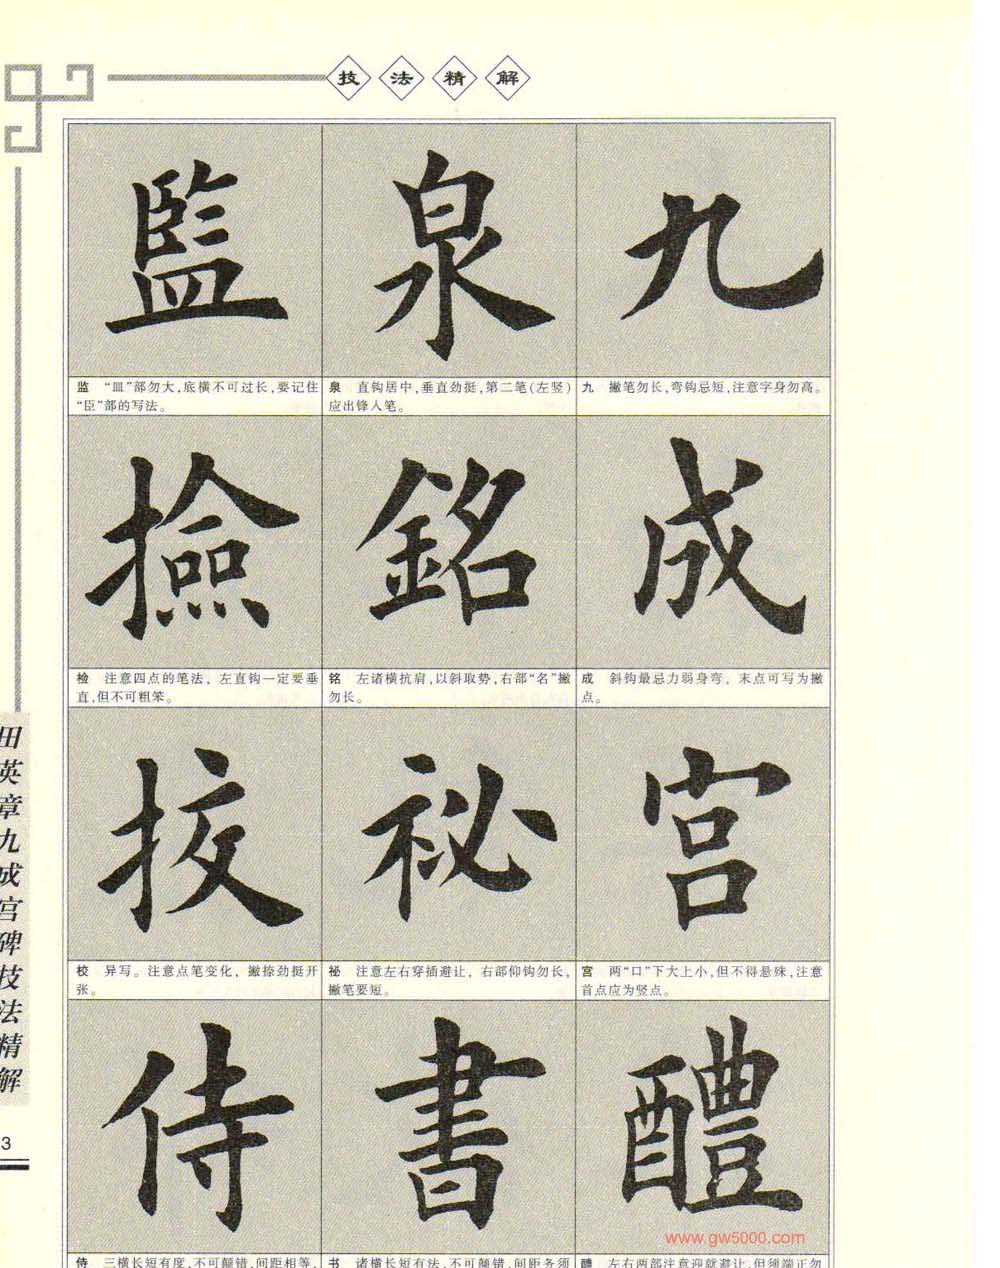 技法精解
監
泉
九
监 “皿”部勿大,底横不可过长,要记住
“臣”部的写法。
泉 直钩居中,垂直劲挺,第二笔(左竖)
应出锋入笔。
九 撇笔勿长,弯钩忌短,注意字身勿高。
撿
銘
成
检 注意四点的笔法,左直钩一定要垂
直,但不可粗笨。
铭 左诸横抗肩,以斜取势,右部“名”撇
勿长。
成 斜钩最忌力弱身弯,末点可写为撇
点。
挍
祕
宫
校 异写。注意点笔变化,撇捺劲挺开
张。
祕 注意左右穿插避让,右部仰钩勿长,
撇笔要短。
宫 两“口”下大上小,但不得悬殊,注意
首点应为竖点。
侍
書
醴
侍 三横长短有度,不可颠错,间距相等,
书 诸横长短有法,不可颠错,间距务须
醴 左右两部注意迎就避让,但须端正勿
田英章九成宫碑技法精解
3
www.gw5000.com